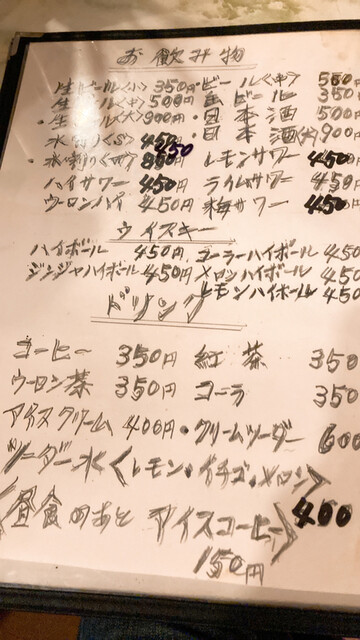 お飲み物
生ビール<小> 350円・ビール<中> 500
生ビール<中> 500円 ・ 黒ビール 350
・生ビール<大> 900円・日本酒 500
水割り<S> 450 ・日本酒<大> 900
・水割り<W> 850 レモンサワー 450
ハイサワー 450円 ライムサワー 450
ウーロンハイ 450円 梅サワー 450
ウイスキー
ハイボール 450円 コーラーハイボール 450
ジンジャハイボール 450円 メロンハイボール 450
レモンハイボール 450
ドリンク
コーヒー 350円 紅茶 350
ウーロン茶 350円 コーラ 350
アイスクリーム 400円・クリームソーダー 600
ソーダー水<レモン・イチゴ・メロン> 400
<昼食のあと アイスコーヒー>
150円